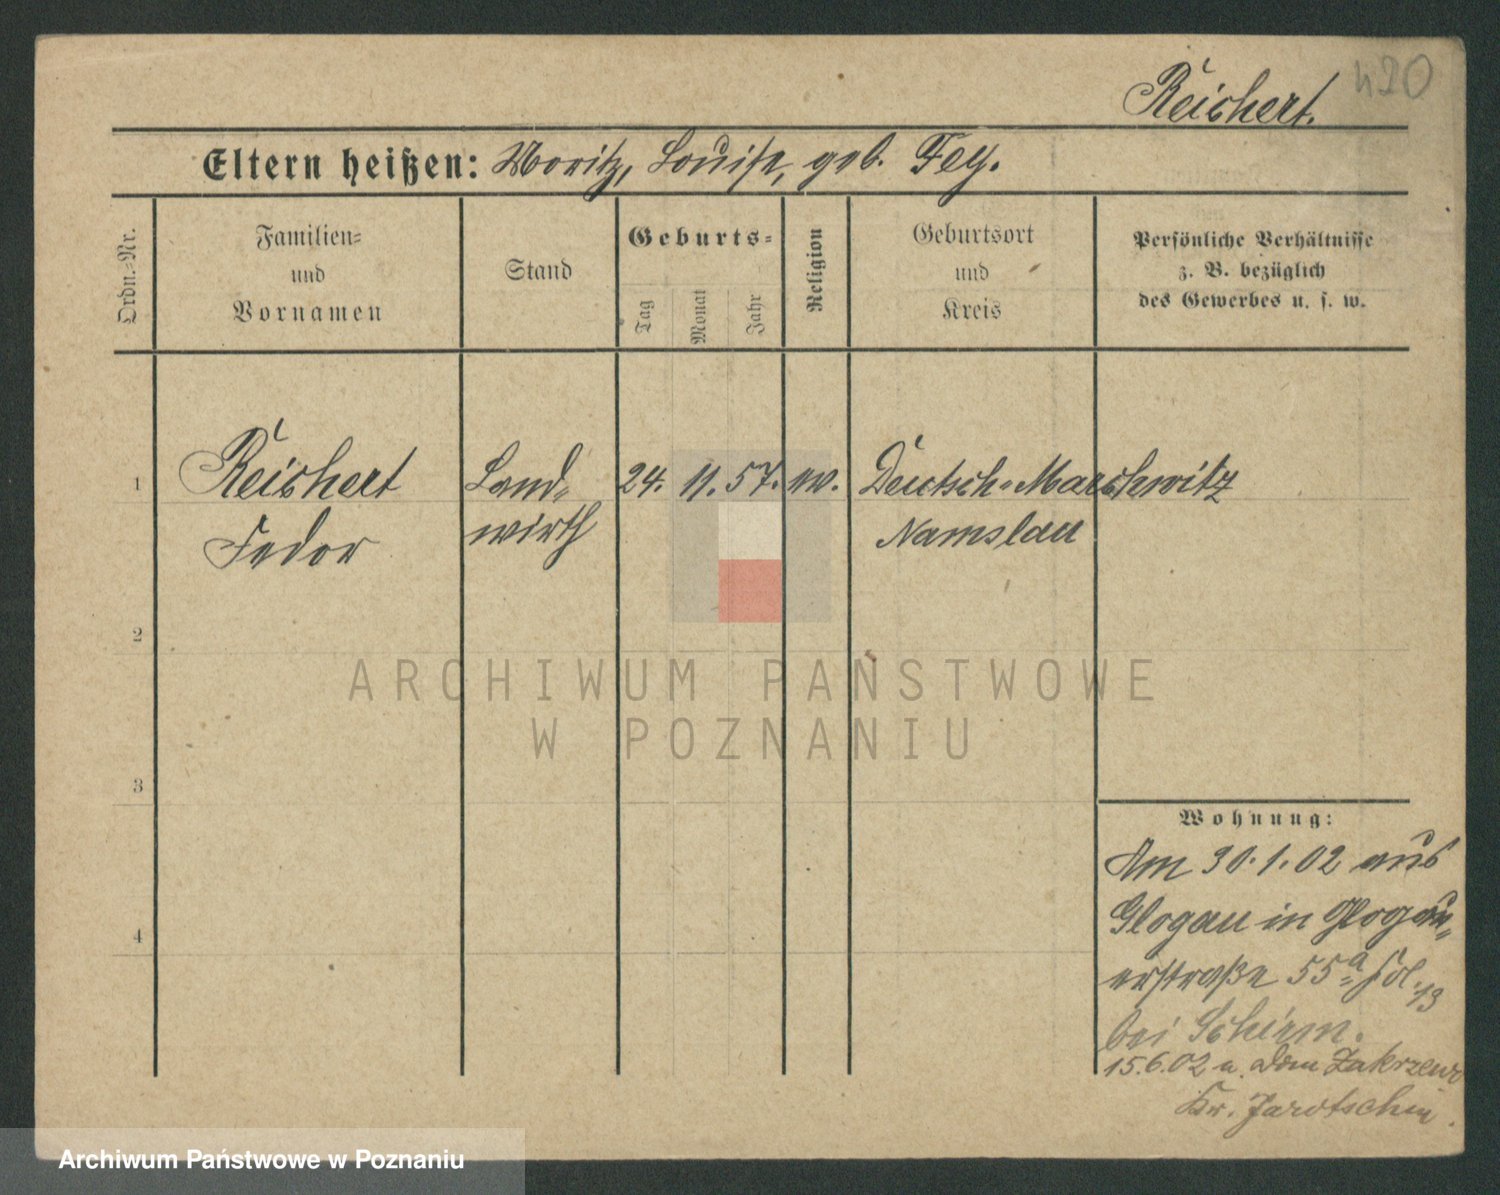 420
Reichert.
Eltern heißen: Moritz, Louise, geb. Fey.
Ordn.-Nr.
Familien-
und
Vornamen
Stand
Geburts-
Tag
Monat
Jahr
Religion
Geburtsort
und
Kreis
Persönliche Verhältnisse
z. B. bezüglich
des Gewerbes u. s. w.
1 Reichert Land- 24. 11. 57. ev. Deutsch-Marchwitz
Fedor wirth Namslau
2
3
4
Wohnung:
Am 30.1.02 aus
Glogau in Glogau-
erstraße 55a
13
bei Schirm.
15.6.02 n. Dom Zakrzew
Kr. Jarotschin.
ARCHIWUM PAŃSTWOWE
W POZNANIU
Archiwum Państwowe w Poznaniu